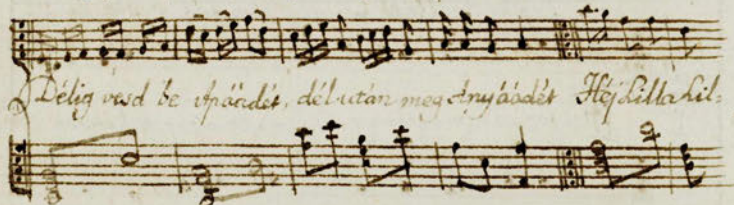 Délig vesd be Apáádét, dél-után meg Anyáádét Héj Lilla Lil=